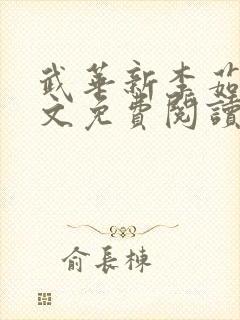 武華新李茹
文免費閱讀
俞長棟